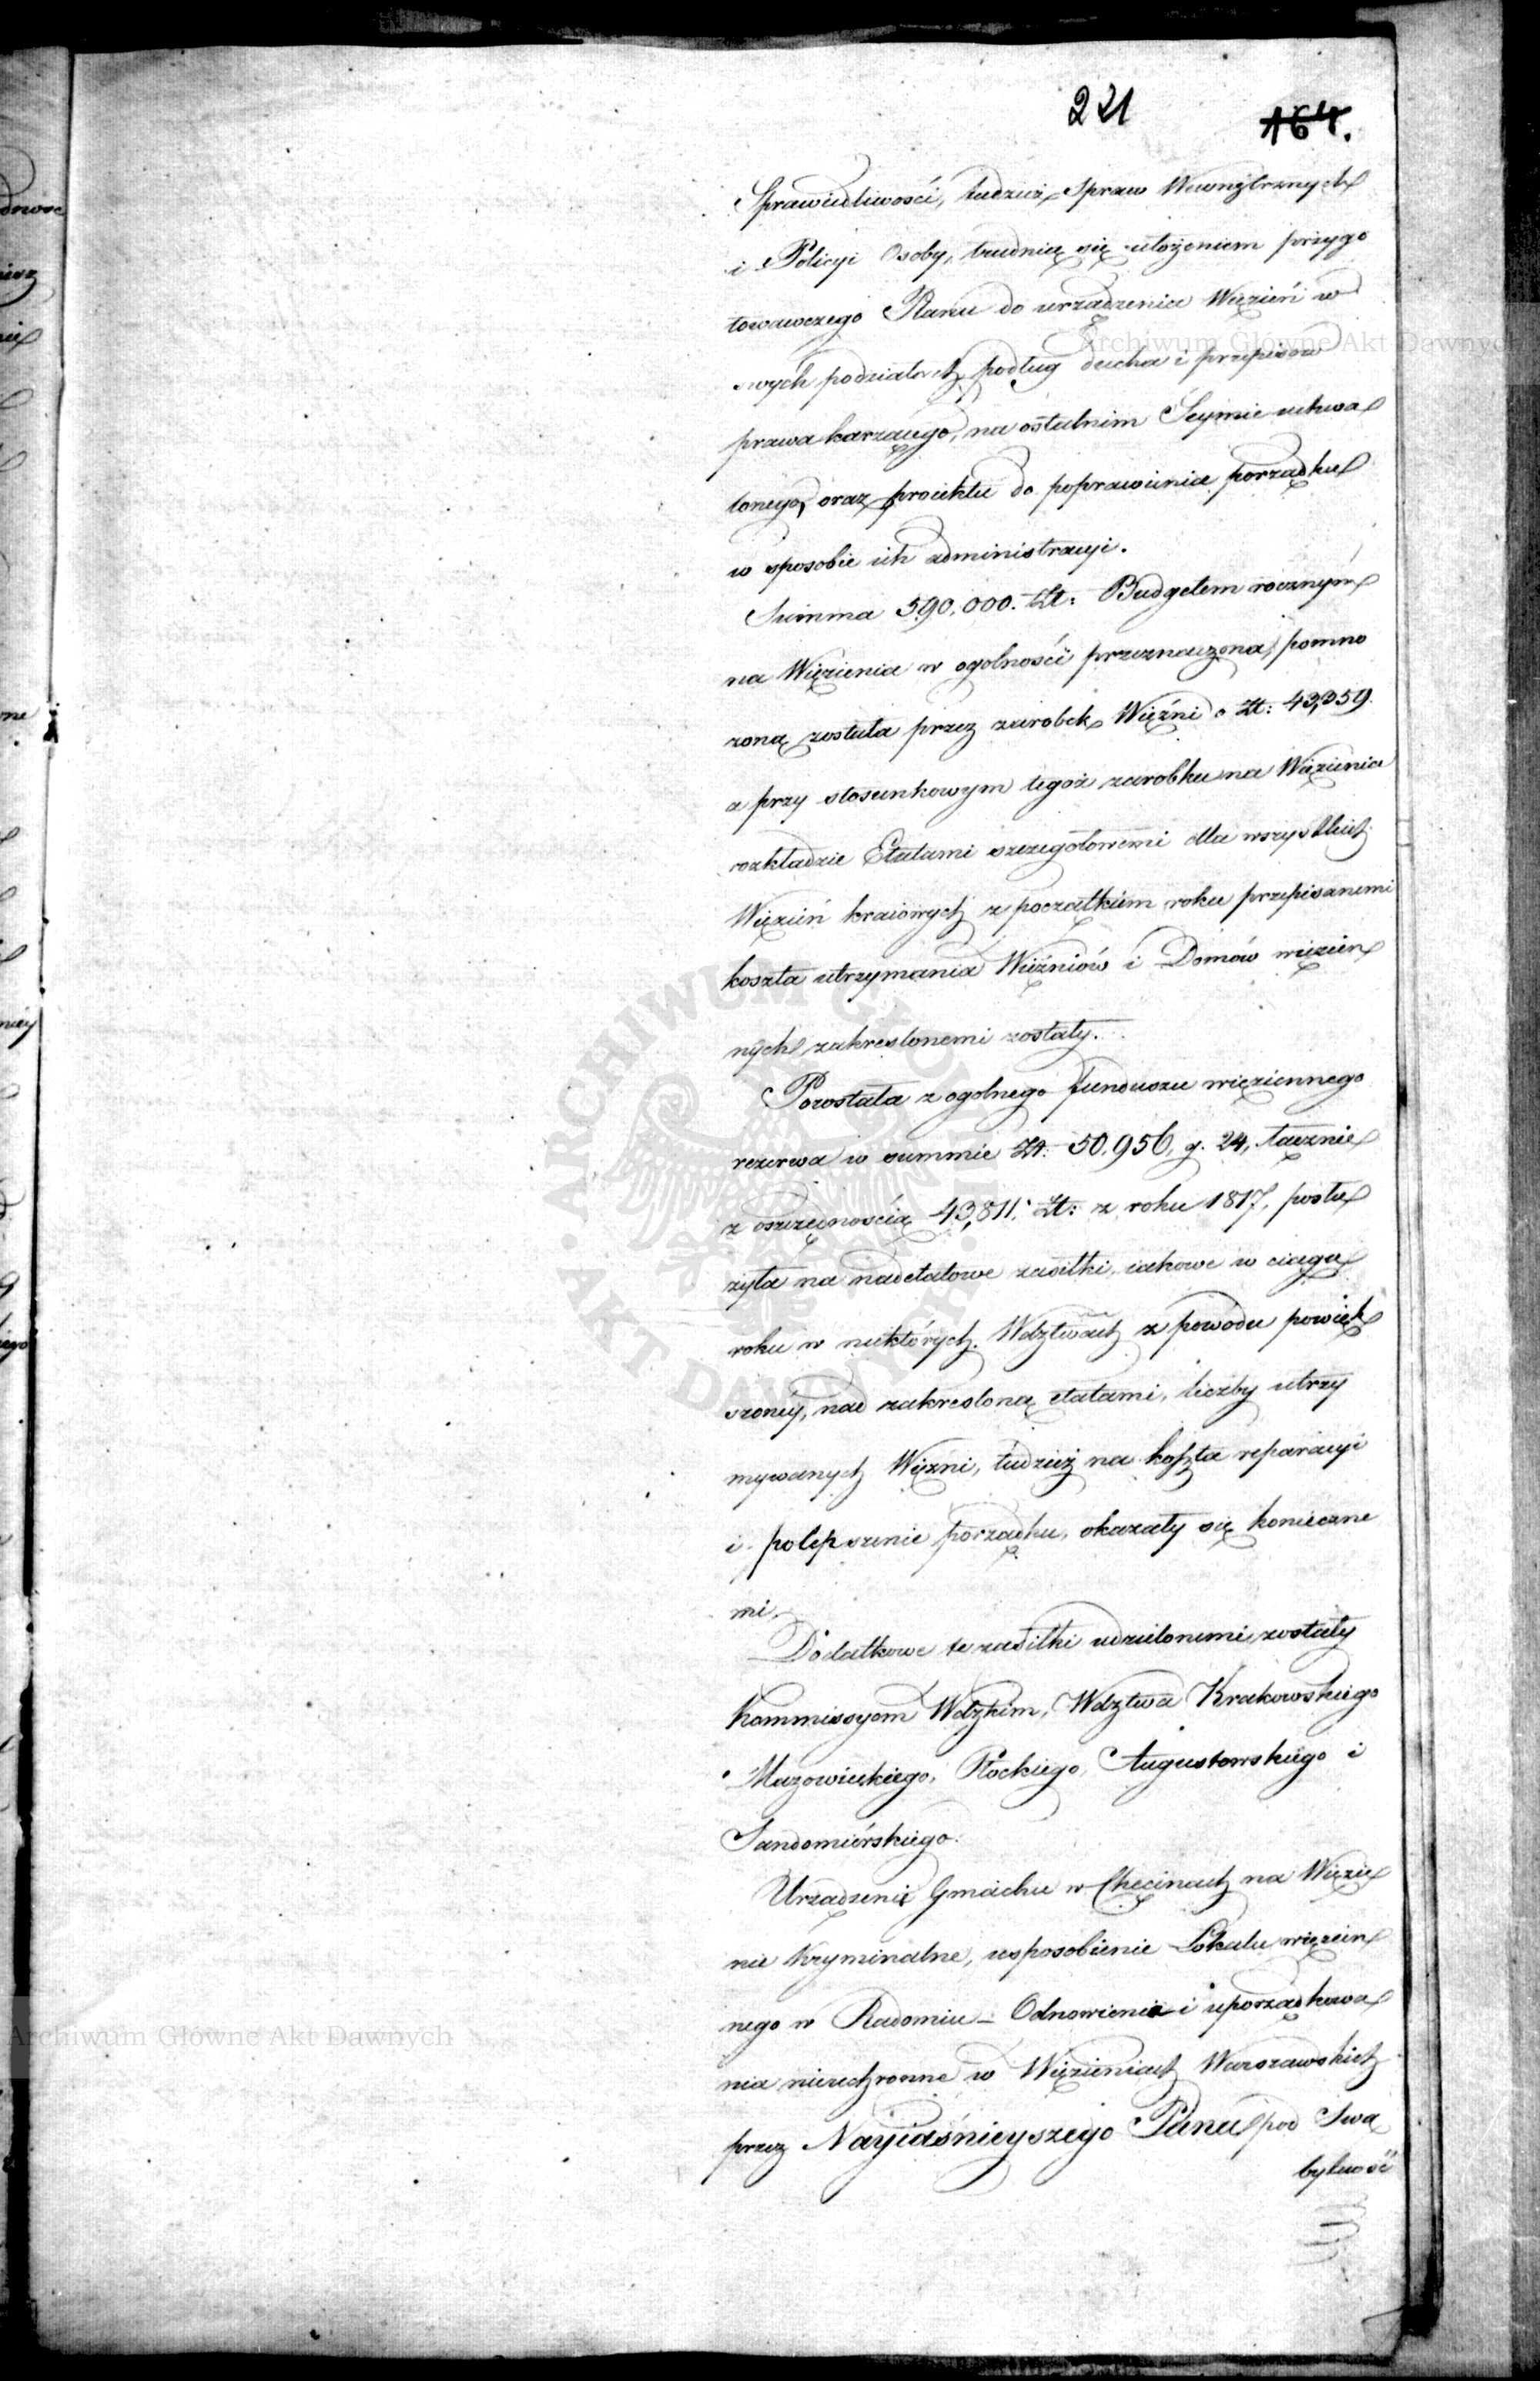 221
164.
Sprawiedliwości, tudzież Spraw Wewnętrznych
i Policyi Osoby, trudnią się ułożeniem przygo
towawczego Planu do urządzenia Więzień w
swych podziałach podług ducha i przepisów
prawa karzącego, na ostatnim Seymie uchwa
lonego, oraz proiektu do poprawienia porządku
w sposobie ich administracyi.
Summa 590,000. Zł: Budgetem rocznym
na Więzienia w ogolności przeznaczona, pomno
żoną została przez zarobek Więźni o Zł: 43,359.
a przy stosunkowym tegoż zarobku na Więzienia
rozkładzie Etatami szczegołowemi dla wszystkich
Więzień kraiowych z początkiem roku przepisanemi
koszta utrzymania Więźniów i Domów więzien
nych zakreslonemi zostały.
Pozostała z ogolnego funduszu więziennego
rezerwa w summie Zł. 50,956, g. 24, łącznie
z oszczęnością 43,811. Zł: z roku 1817, posłu
żyła na nadetatowe zasiłki, iakowe w ciągu
roku w niektórych Wdztwach z powodu powięk
szoney, nad zakresloną etatami, liczby utrzy
mywanych Więźni, tudzież na koszta reparacyi
i polepszenie porządku, okazały się konieczne
mi.
Dodatkowe te zasiłki udzielonemi zostały
Kommissyom Wdzkim, Wdztwa Krakowskiego
Mazowieckiego, Płockiego, Augustowskiego i
Sandomiérskiego.
Urządzenie Gmachu w Chęcinach na Więzie
nie Kryminalne, usposobienie Lokalu więzien
nego w Radomiu – Odnowienia i uporządkowa
nia niezchronne w Więzieniach Warszawskich
przez Nayiaśnieyszego Pana pod Swą
bytność
Archiwum Główne Akt Dawnych
ARCHIWUM GŁÓWNE AKT DAWNYCH
Archiwum Główne Akt Dawnych